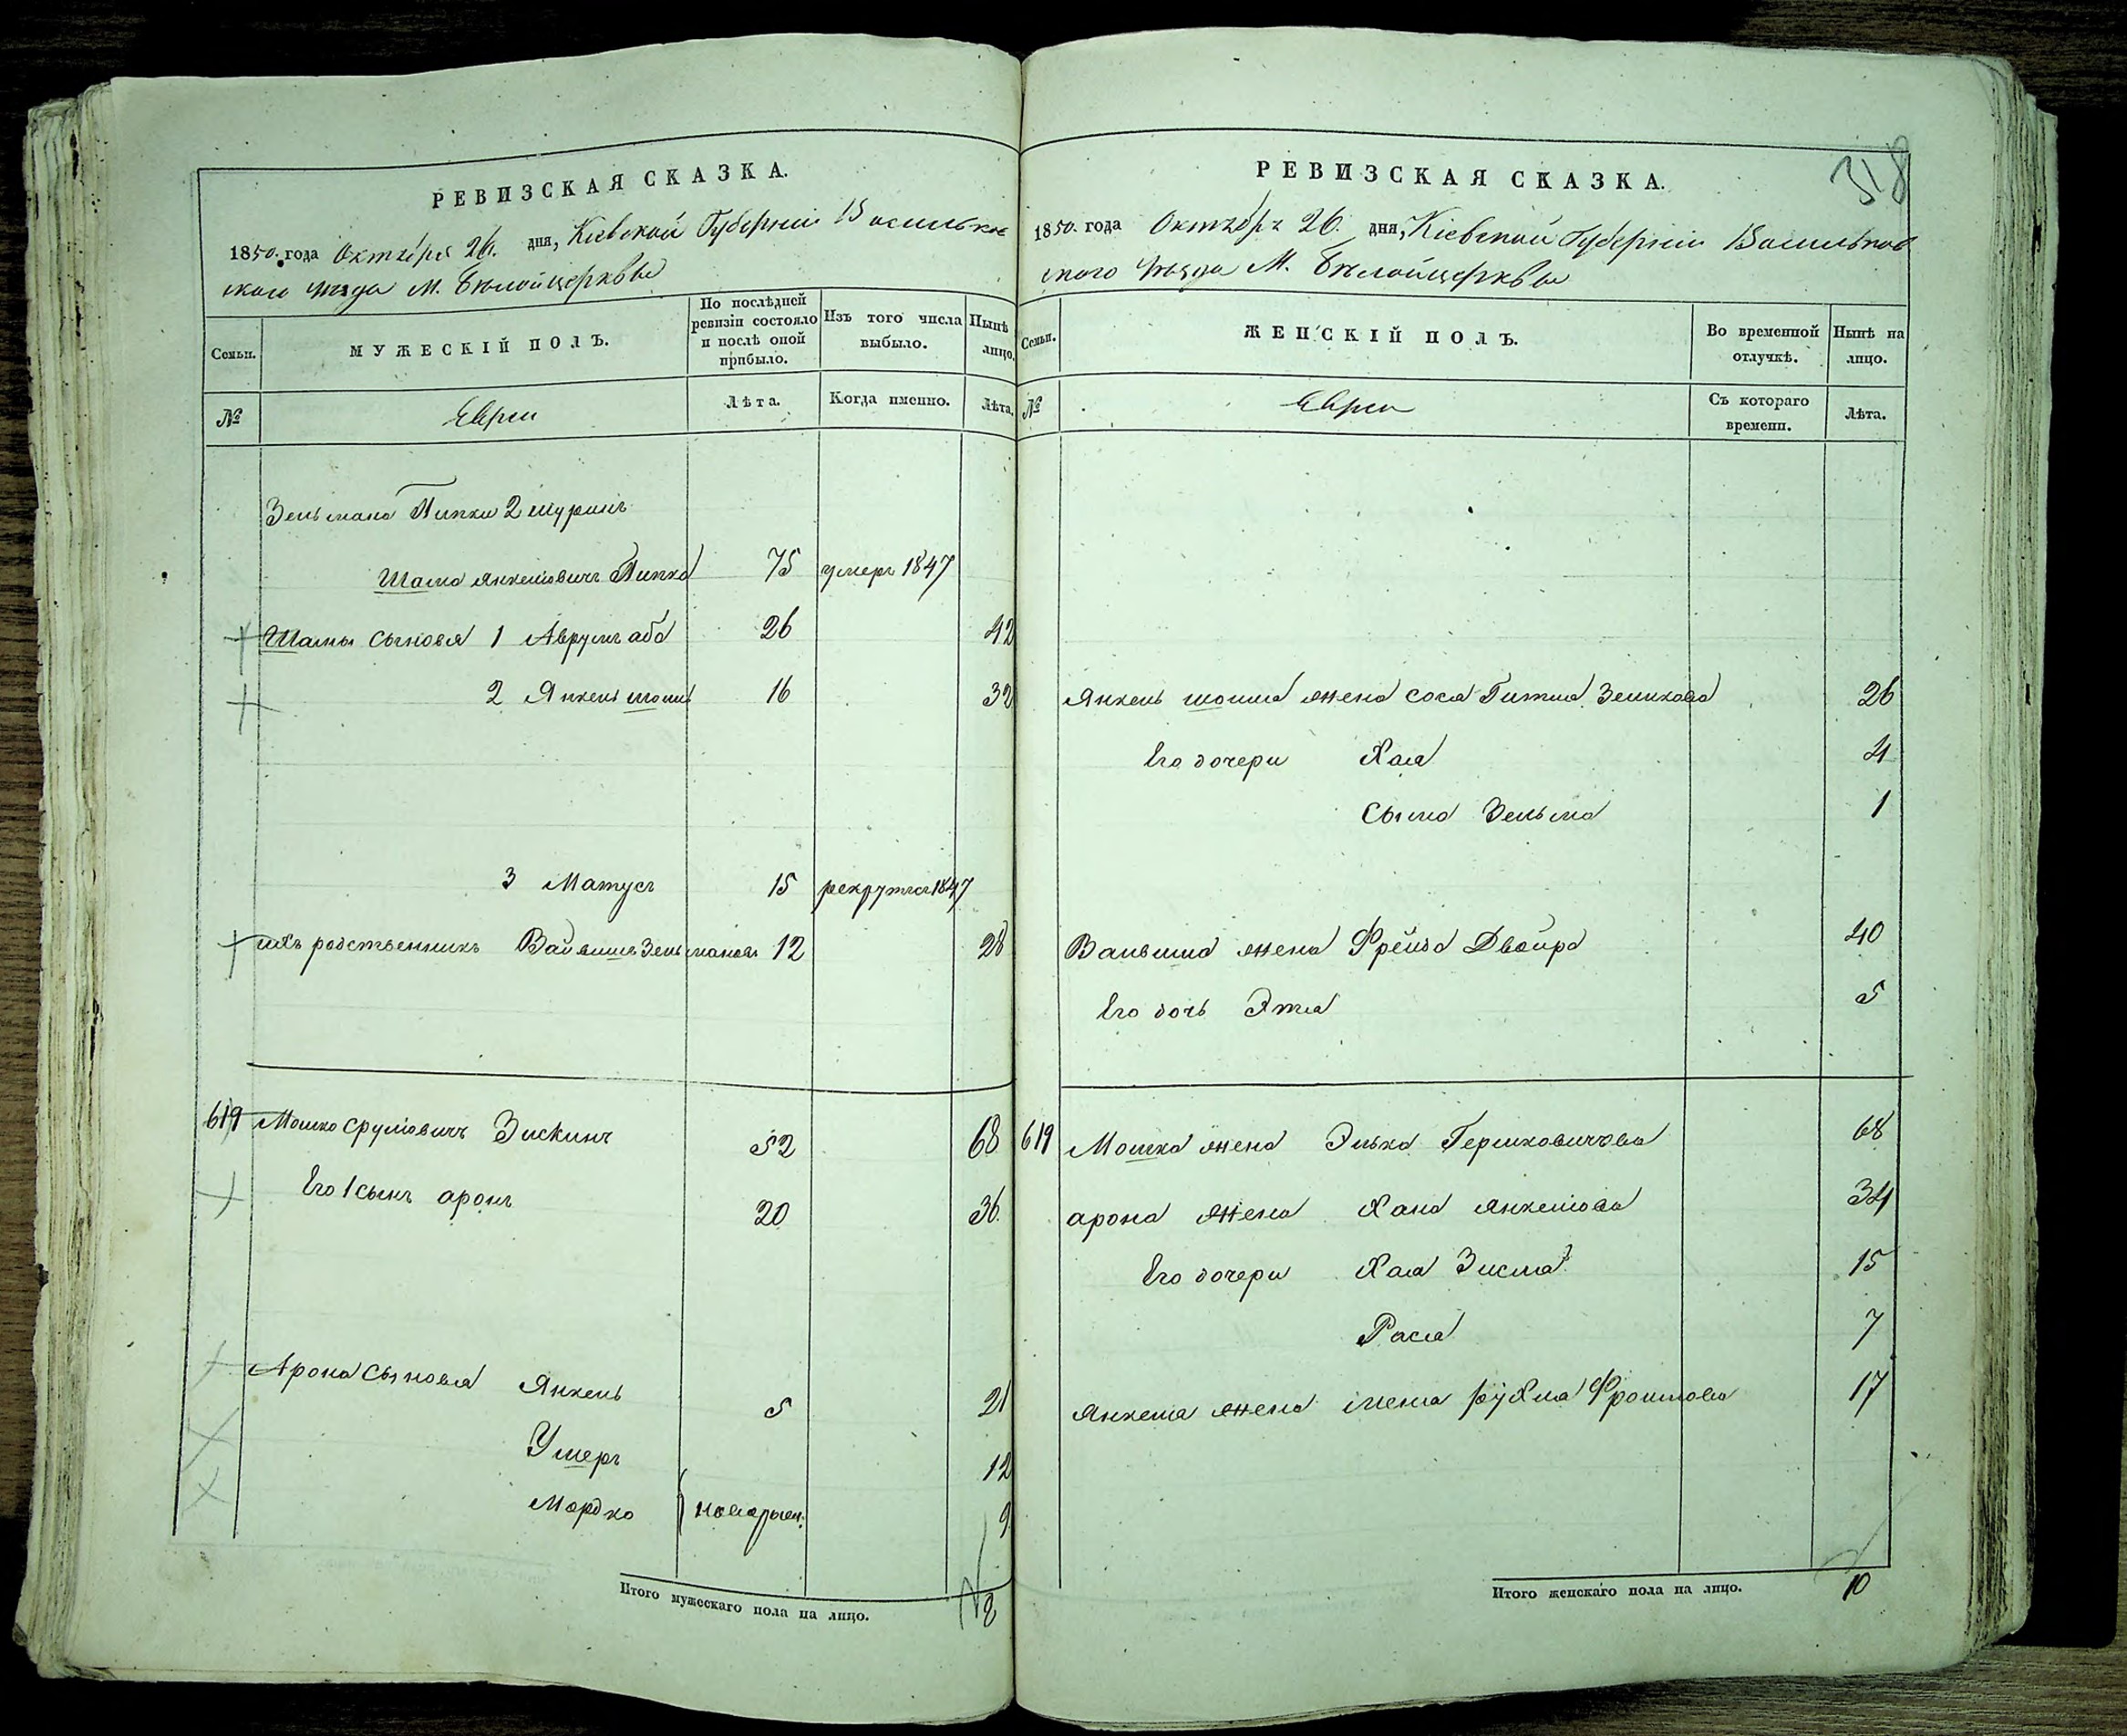 РЕВИЗСКАЯ СКАЗКА.
1850. года Октября 26. дня, Кіевской Губерніи Васильков
скаго уѣзда М. Бѣлойцеркви
Семьи.
МУЖЕСКІЙ ПОЛЪ.
По послѣдней ревизіи состояло и послѣ оной прибыло.
Изъ того числа выбыло.
Нынѣ лицо.
№
Евреи
Лѣта.
Когда именно.
Лѣта.
Зельмана Пипки 2 шуринъ
Шама Янкелiовичъ Пипка 75 умеръ 1847
Шамы сыновья 1 Аврумъ аба 26 42
2 Янкель шоилъ 16 32
3 Матусъ 15 рекрутъ 1847
ихъ родственникъ Вайвишъ Зельмановъ 12 28
619 Мошко Сруліовичъ Зискинъ 52 68
Его 1 сынъ аронъ 20 36.
Арона сыновья Янкель 5 21
Ушеръ 12
Мордко новорожен. 9
Итого мужескаго пола на лицо. 8
318
РЕВИЗСКАЯ СКАЗКА.
1850. года Октября 26. дня, Кіевской Губерніи Васильков
скаго уѣзда М. Бѣлойцеркви
Семьи.
ЖЕНСКІЙ ПОЛЪ.
Во временной отлучкѣ.
Нынѣ на лицо.
№
Евреи
Съ котораго времени.
Лѣта.
Янкель шоила жена Сося Гитля 26
Его дочери Хая 4
Сыма Зельма 1
Вайвиша жена Фрейда Двойра 40
Его дочь Этя 5
619 Мошка жена Элька Гершковичова 68
арона жена Хана Янкеліова 34
Его дочери Хая Зисля 15
Рася 7
Янкеля жена Рухля Фроимова 17
Итого женскаго пола на лицо. 10